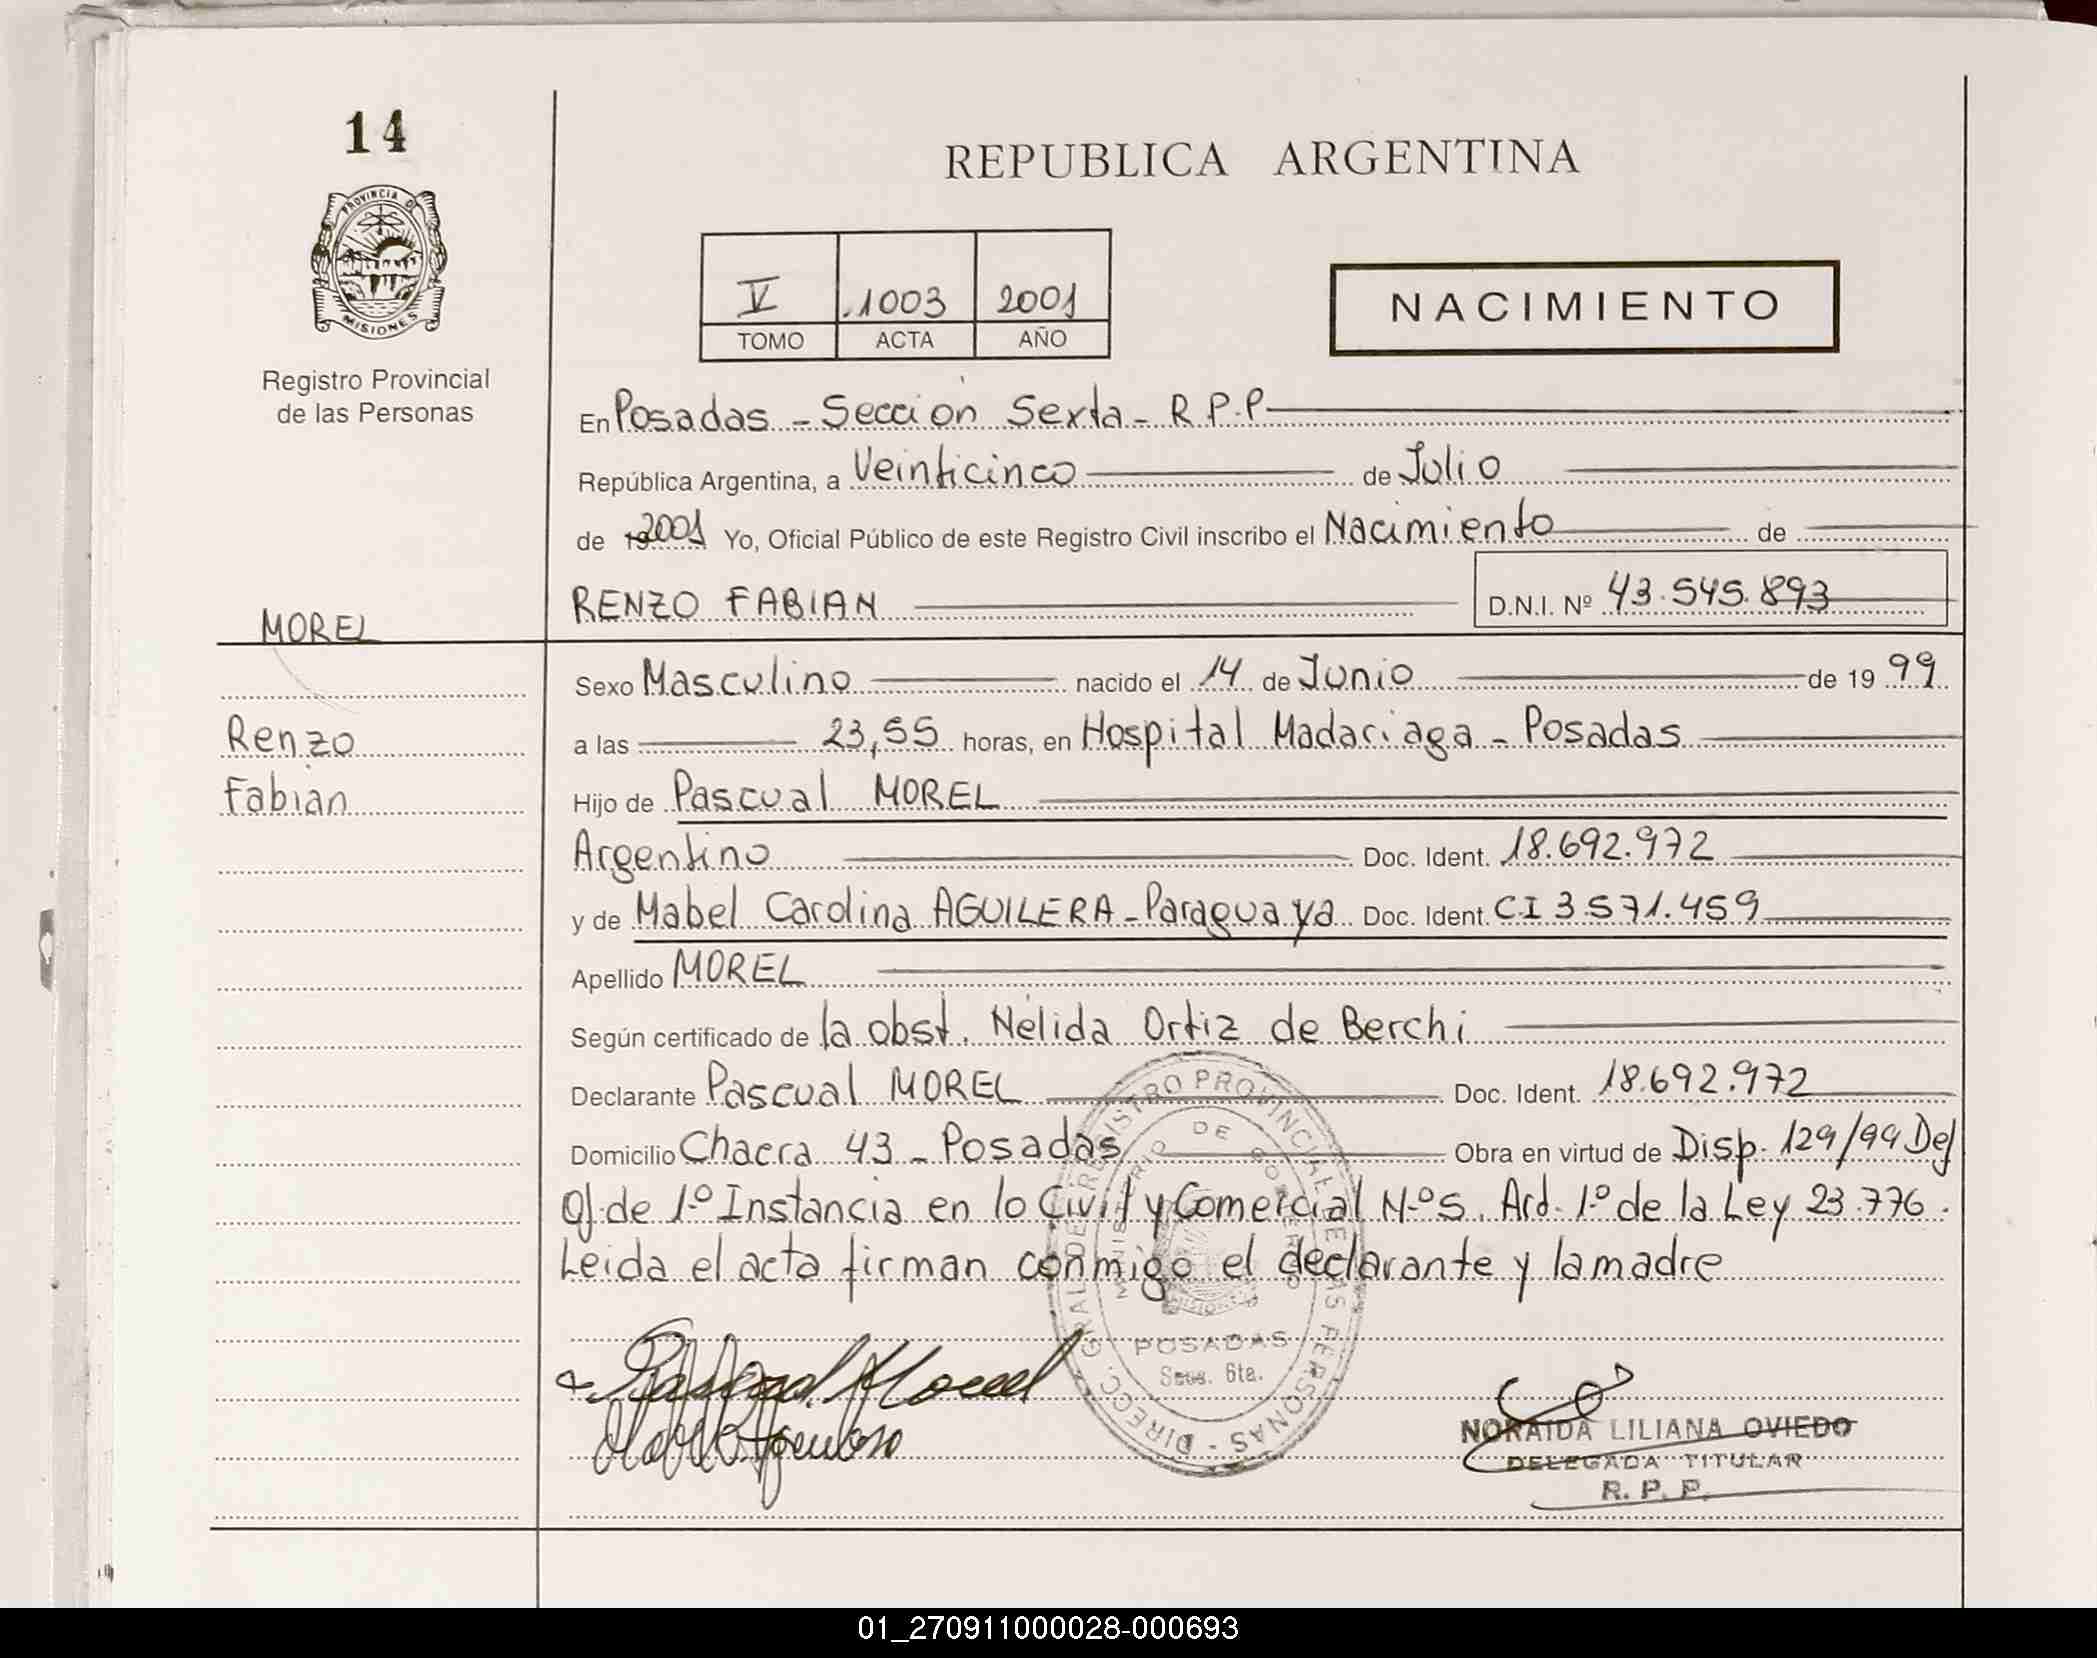 14
PROVINCIA D
MISIONES
Registro Provincial
de las Personas
REPUBLICA ARGENTINA
V 1003 2001
TOMO ACTA AÑO
NACIMIENTO
En Posadas - Sección Sexta - R.P.P
República Argentina, a Veinticinco de Julio
de 2001 Yo, Oficial Público de este Registro Civil inscribo el Nacimiento de
RENZO FABIAN D.N.I. Nº 43.545.893
MOREL
Sexo Masculino nacido el 14 de Junio de 1999
Renzo
a las 23,55 horas, en Hospital Madariaga - Posadas
Fabian
Hijo de Pascual MOREL
Argentino Doc. Ident. 18.692.972
y de Mabel Carolina AGUILERA - Paraguaya Doc. Ident. CI 3.571.459
Apellido MOREL
Según certificado de la obst. Nélida Ortiz de Berchi
Declarante Pascual MOREL Doc. Ident. 18.692.972
Domicilio Chacra 43 - Posadas Obra en virtud de Disp. 129/99 Def
Of. de 1º Instancia en lo Civil y Comercial Nº 5. Art. 1º de la Ley 23.776.
Leida el acta firman conmigo el declarante y la madre
DIRECC. GRAL DEL REGISTRO PROVINCIAL DE LAS PERSONAS
MINISTERIO DE GOBIERNO
POSADAS
Secc. 6ta.
Pascual Morel
NORAIDA LILIANA OVIEDO
DELEGADA TITULAR
R. P. P.
01_270911000028-000693